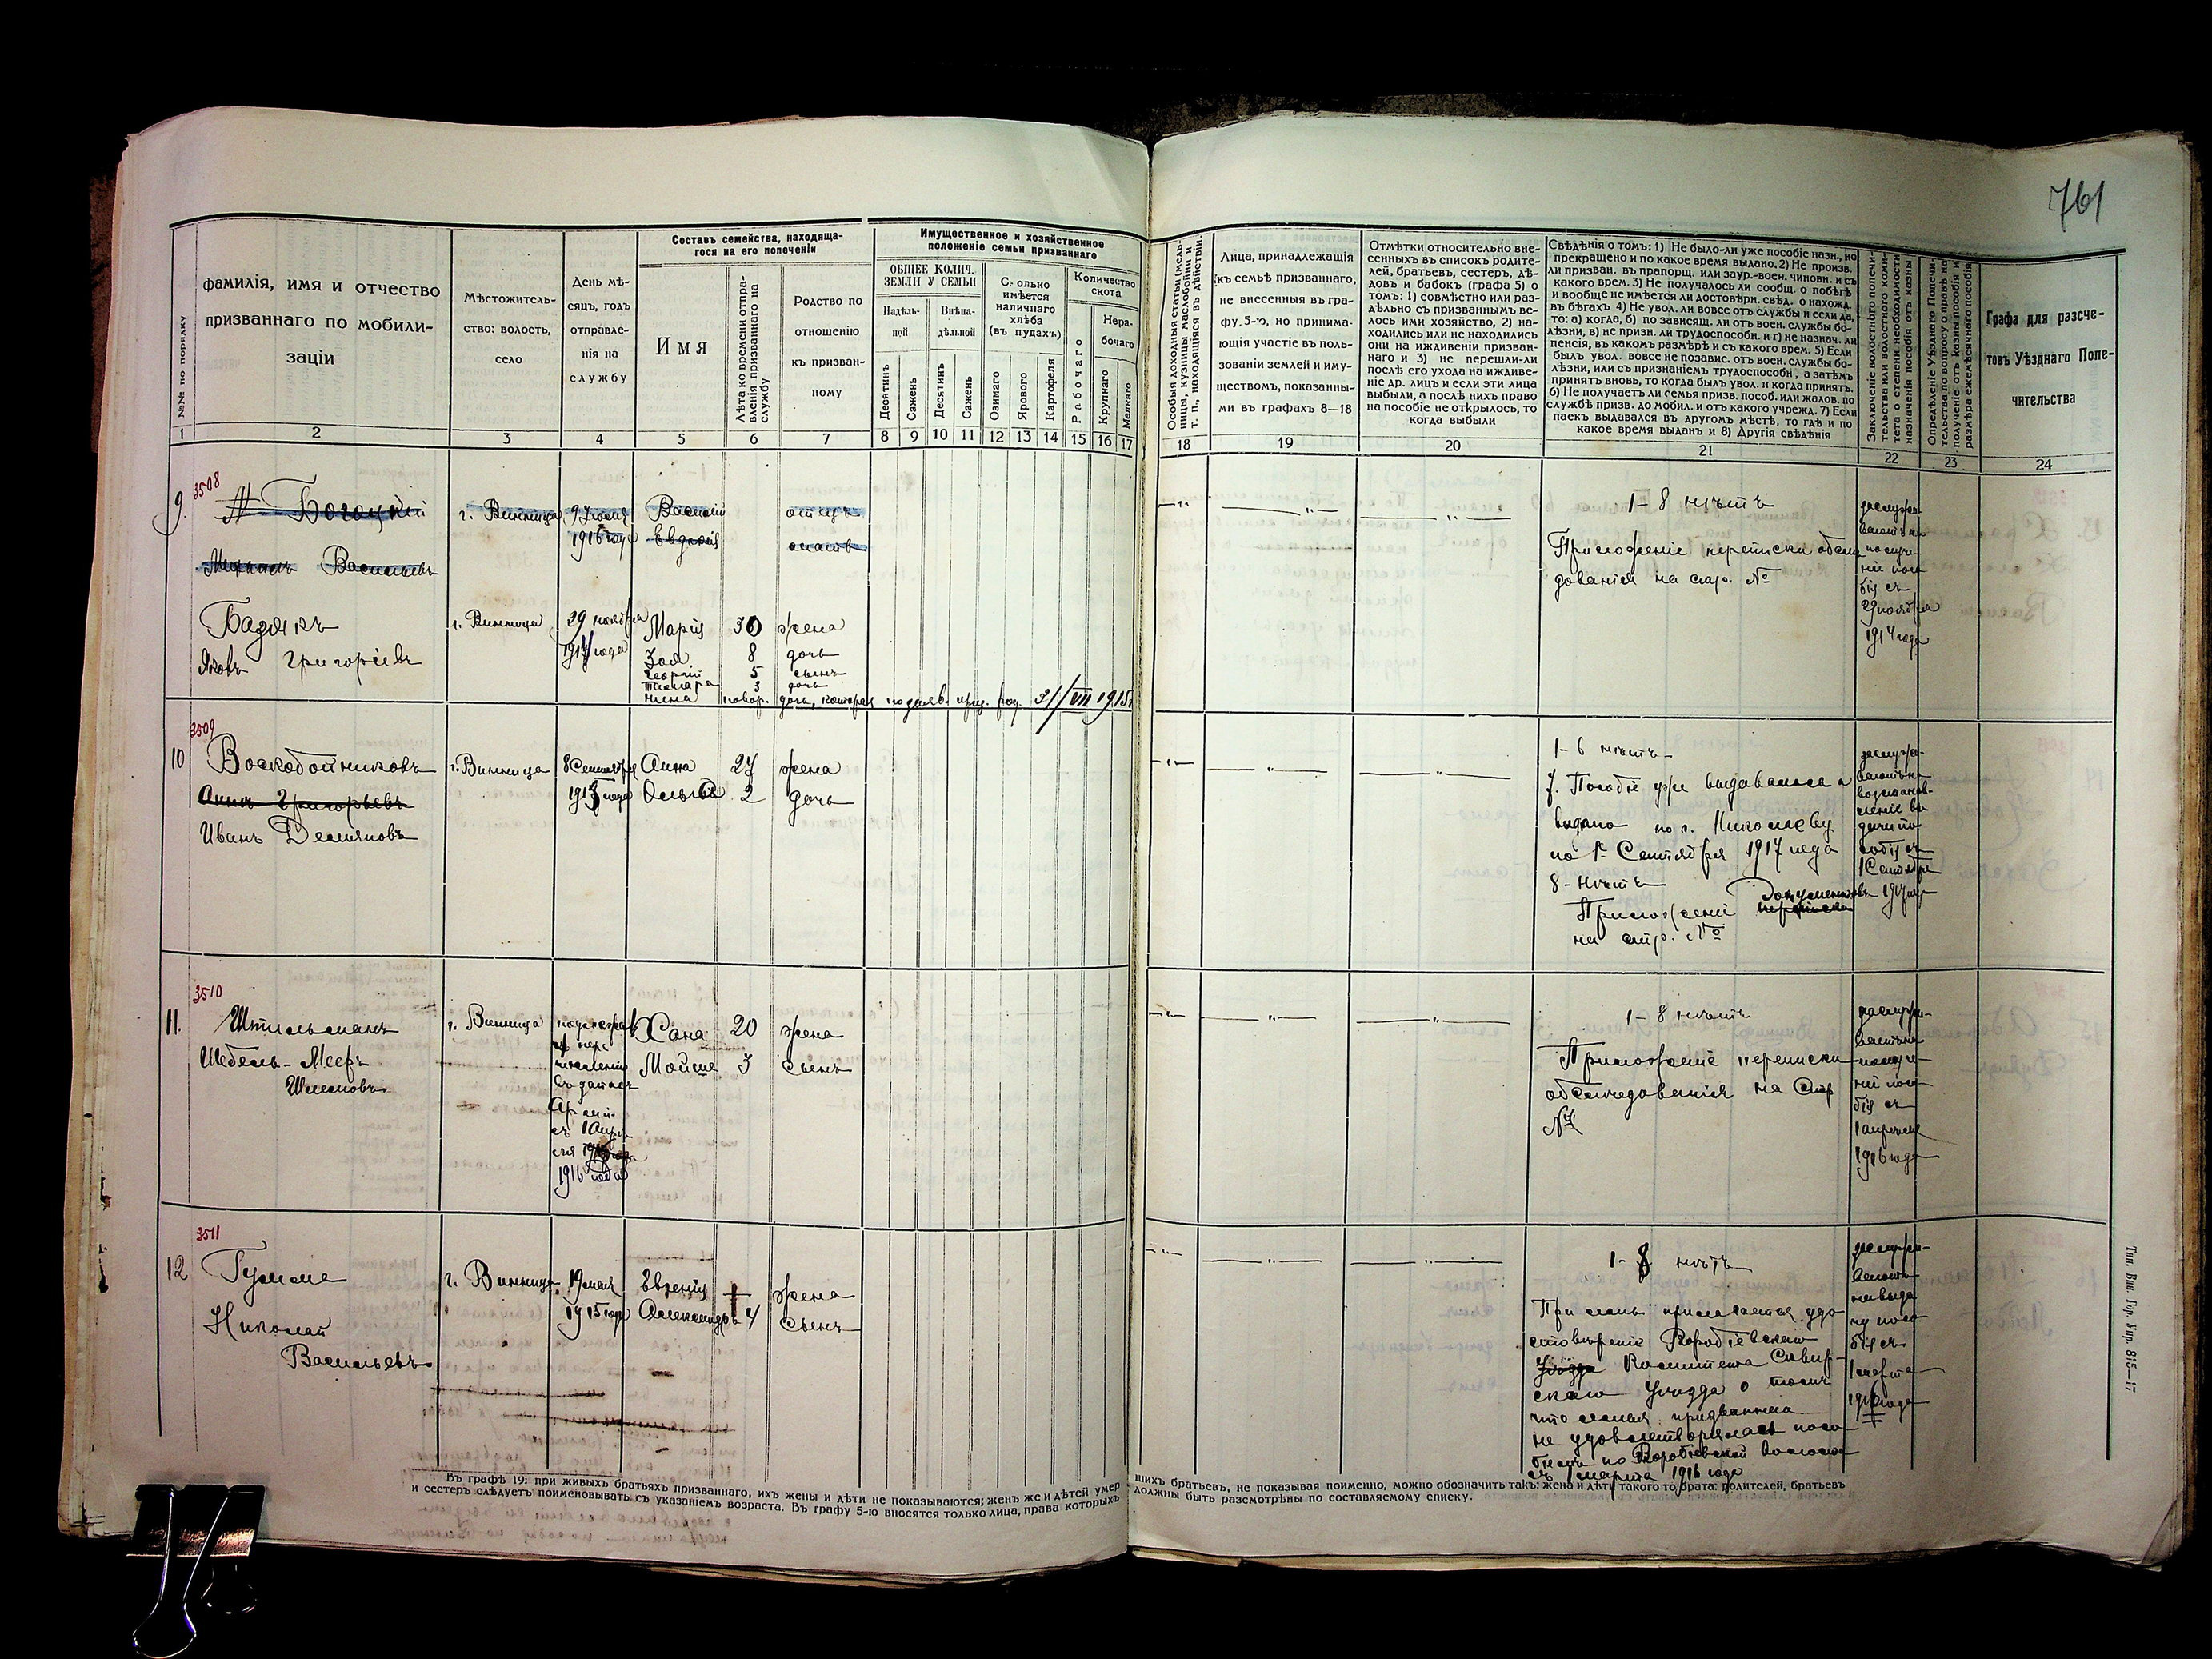 761
Составъ семейства, находяща-
гося на его попеченіи
Имущественное и хозяйственное
положеніе семьи призваннаго
№№ по порядку
фамилія, имя и отчество
призваннаго по мобили-
заціи
Мѣстожитель-
ство: волость,
село
День мѣ-
сяцъ, годъ
отправле-
нія на
службу
Имя
Лѣта ко времени отпра-
вленія призваннаго на
службу
Родство по
отношенію
къ призван-
ному
ОБЩЕЕ КОЛИЧ.
ЗЕМЛИ У СЕМЬИ
Надѣль-
ной
Внѣна-
дѣльной
Десятинъ
Сажень
Десятинъ
Сажень
Сколько
имѣется
наличнаго
хлѣба
(въ пудахъ.)
Озимаго
Ярового
Картофеля
Количество
скота
Рабочаго
Нера-
бочаго
Крупнаго
Мелкаго
Особыя доходныя статьи (мель-
ницы, кузницы маслобойни и
т. п., находящіяся въ дѣйствіи.
Лица, принадлежащія
къ семьѣ призваннаго,
не внесенныя въ гра-
фу 5-ю, но принима-
ющія участіе въ поль-
зованіи землей и иму-
ществомъ, показанны-
ми въ графахъ 8—18
Отмѣтки относительно вне-
сенныхъ въ списокъ родите-
лей, братьевъ, сестеръ, дѣ-
довъ и бабокъ (графа 5) о
томъ: 1) совмѣстно или раз-
дѣльно съ призваннымъ ве-
лось ими хозяйство, 2) на-
ходились или не находились
они на иждивеніи призван-
наго и 3) не перешли-ли
послѣ его ухода на иждиве-
ніе др. лицъ и если эти лица
выбыли, а послѣ нихъ право
на пособіе не открылось, то
когда выбыли
Свѣдѣнія о томъ: 1) Не было-ли уже пособіе назн., но
прекращено и по какое время выдано. 2) Не произв.
ли призван. въ прапорщ. или заур.-воен. чиновн. и съ
какого врем. 3) Не получалось ли сообщ. о побѣгѣ
и вообще не имѣется ли достовѣрн. свѣд. о нахожд.
въ бѣгахъ 4) Не увол. ли вовсе отъ службы и если да,
то: а) когда, б) по зависящ. ли отъ воен. службы бо-
лѣзни, в) не призн. ли трудоспособн. и г) не назнач. ли
пенсія, въ какомъ размѣрѣ и съ какого врем. 5) Если
былъ увол. вовсе не позавис. отъ воен. службы бо-
лѣзни, или съ признаніемъ трудоспособн, а затѣмъ
принятъ вновь, то когда былъ увол. и когда принятъ.
6) Не получаетъ ли семья призв. пособ. или жалов. по
службѣ призв. до мобил. и отъ какого учрежд. 7) Если
паекъ выдавался въ другомъ мѣстѣ, то гдѣ и по
какое время выданъ и 8) Другія свѣдѣнія
Заключеніе волостного попечи-
тельства или волостного коми-
тета о степени необходимости
назначенія пособія отъ казны
Опредѣленіе Уѣзднаго Попечи-
тельства по вопросу о правѣ на
полученіе отъ казны пособія и
размѣра ежемѣсячнаго пособія
Графа для разсче-
товъ Уѣзднаго Попе-
чительства
1 2 3 4 5 6 7 8 9 10 11 12 13 14 15 16 17 18 19 20 21 22 23 24
9. 3508
Богоцкій г. Винница 9 Іюля Василій отецъ
1916 года Евдокія мать
Василіевъ
г. Винница 29 ноября Марія 30 жена
Яковъ Григоріевъ 1914 года Зоя 8 дочь
Георгій 5 сынъ
Тамара 3 дочь
Нина новор. дочь, которая 31/VII 1915
1-8 нѣтъ
Приложеніе переписки обслѣ-
дованія на стр. №
29 ноября
1914 года
10 3509
Воскобойниковъ г. Винница 8 Сентября Анна 27 жена
Григорьевъ года Ольга 2 дочь
Иванъ Демяновъ
1-6 нѣтъ
7. Пособіе уже выдавалось и
выдано по г. Николаеву
по 1е Сентября 1917 года
8-нѣтъ
Приложеніе документовъ
на стр. №
1 Сентября
11. 3510
Штильманъ г. Винница Хана 20 жена
Мойше 3 сынъ
съ 1 Апрѣ-
ля
1916 года
1-8 нѣтъ
Приложеніе переписки
обслѣдованія на Стр
№
1 апрѣля
1916 года
12 3511
г. Винница 19 мая Евгенія жена
Николай 1915 года Александръ 4 сынъ
Васильевъ
1-8 нѣтъ
При семъ прилагается удо-
стовѣреніе
Уѣзда Комитета Сквир-
скаго Уѣзда о томъ
что семья призваннаго
не удовлетворялась посо-
біемъ по
съ 1 марта 1916 года
1 марта
Въ графѣ 19: при живыхъ братьяхъ призваннаго, ихъ жены и дѣти не показываются; женъ же и дѣтей умер
шихъ братьевъ, не показывая поименно, можно обозначить такъ: жена и дѣти такого то брата: родителей, братьевъ
и сестеръ слѣдуетъ поименовывать съ указаніемъ возраста. Въ графу 5-ю вносятся только лица, права которыхъ
должны быть разсмотрѣны по составляемому списку.
Тип. Вин. Гор. Упр. 815—17